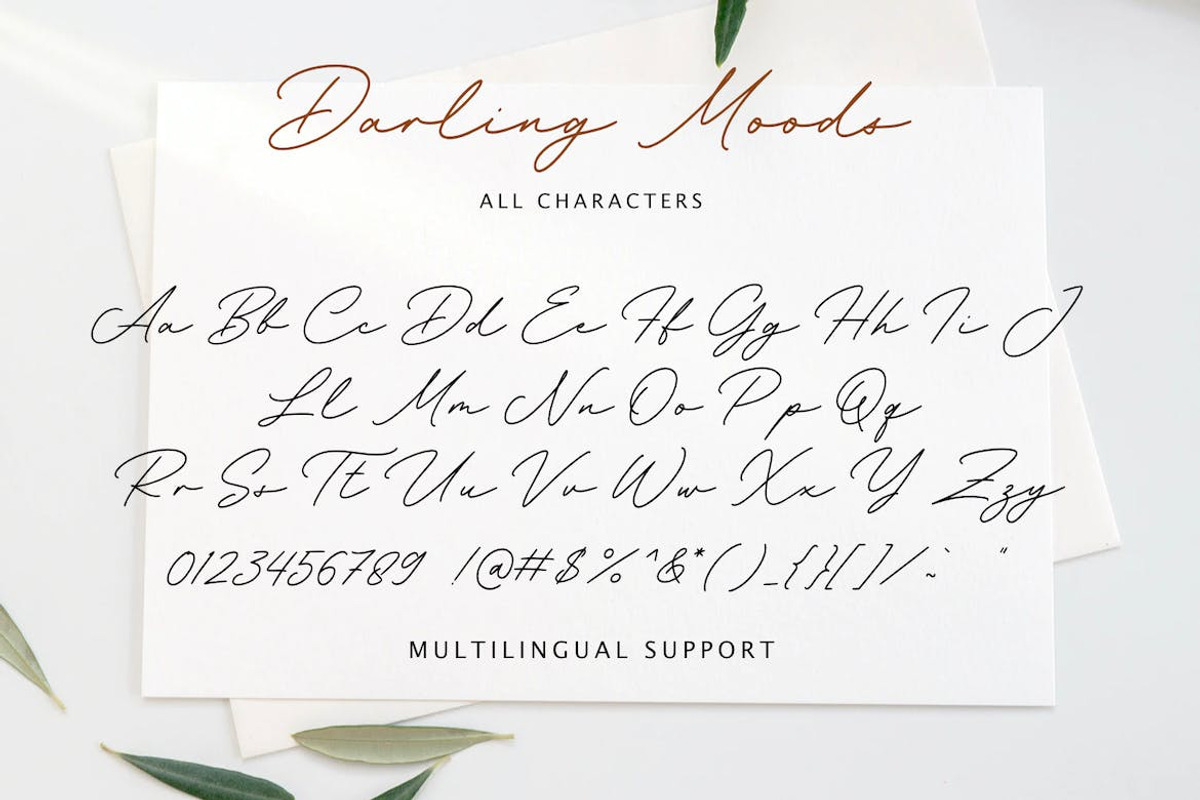 Darling Moods
ALL CHARACTERS
Aa Bb Cc Dd Ee Ff Gg Hh Ii J
Ll Mm Nn Oo Pp Qq
Rr Ss Tt Uu Vv Ww Xx Y Zzy
0123456789 !@#$%^&*()_{}[]/`~ "
MULTILINGUAL SUPPORT